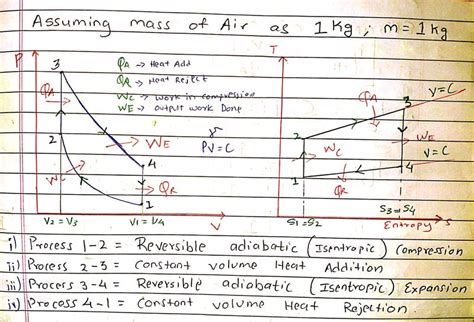 Assuming mass of Air as 1 Kg ; m = 1 kg
P
T
3
QA → Heat Add
QR → Heat Reject
WC → Work in compression
WE → output work Done
QA
PVγ = C
WE
2
W
4
QR
1
V2 = V3
V1 = V4
V
V = C
QA
3
2
WC
WE
V = C
1
QR
4
S1 = S2
S3 = S4
Entropy
i) Process 1-2 = Reversible adiabatic (Isentropic) Compression
ii) Process 2-3 = Constant volume Heat Addition
iii) Process 3-4 = Reversible adiabatic (Isentropic) Expansion
iv) Process 4-1 = Constant volume Heat Rejection.